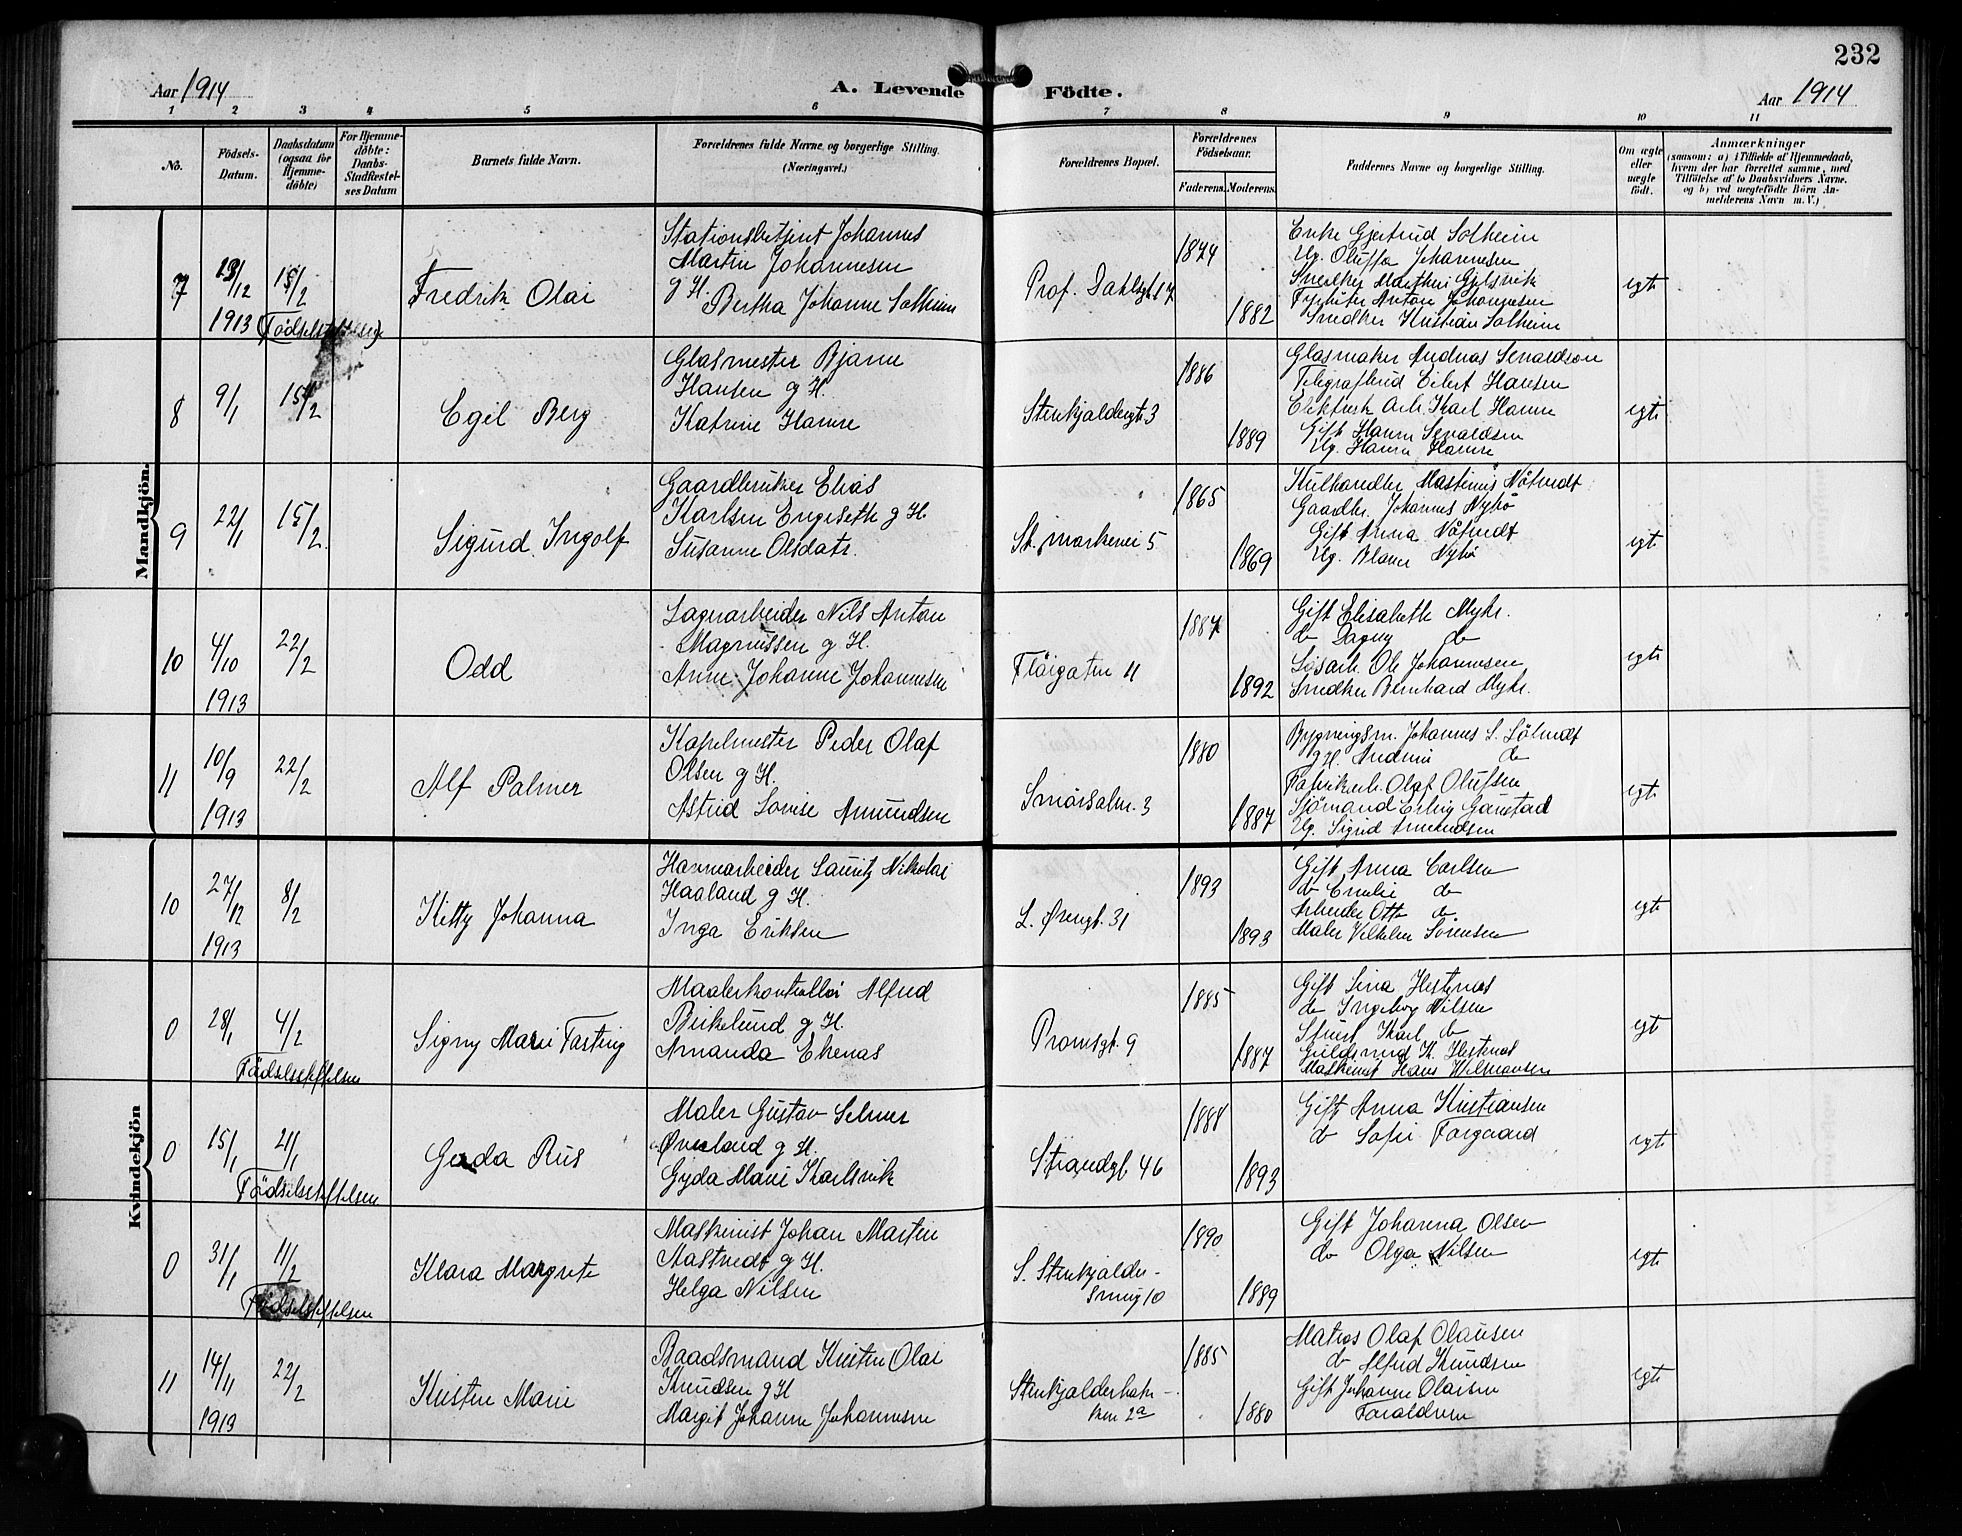 232
Aar 1914
A. Levende Födte.
Aar 1914
1 2 3 4 5 6 7 8 9 10 11
No.
Födsels-Datum.
Daabsdatum (ogsaa for Hjemme-döbte)
For Hjemme-döbte: Daabs-Stadfestel-ses Datum
Barnets fulde Navn.
Forældrenes fulde Navne og borgerlige Stilling.
(Næringsvei.)
Forældrenes Bopæl.
Forældrenes Födselsaar.
Faderens. Moderens.
Faddernes Navne og borgerlige Stilling.
Om ægte eller uægte födt.
Anmærkninger
(saasom: a) i Tilfælde af Hjemmedaab,
hvem der har forrettet samme, med
Tilföielse af to Daabsvidners Navne.
og b) ved uægtefödte Börn An-
melderens Navn m. V.)
Mandkjön.
7
13/12
1913
15/2
(Födselsstiftelsen)
Fredrik Olai
Stationsbetjent Johannes
Martin Johannesen
g H.
Bertha Johanne Solheim
Prof. Dahlsgt 17
1874
1882
Enke Gjertrud Solheim
Ug. Oluffa Johannesen
Snedker Mathias Gjelsvik
Anton Johannesen
Snedker Kristian Solheim
egte
8
9/1
15/2
Egil Berg
Glasmester Bjarne
Hansen g H.
Katrine Hamre
Stenkjeldergt 3
1886
1889
Glasmaker Andreas
Eilert Hansen
Elektrisk Arb. Karl Hamre
Gift Hanna
Ug. Hanna Hamre
egte
9
22/1
15/2
Sigurd Ingolf
Gaardbruker Elias
Karlsen Engeseth g H.
Susanne Olsdatr.
St. markevei 5
1865
1869
Kulhandler Martinus Nåtvedt
Gaardbr. Johannes Nybö
Gift Anna Nåtvedt
Ug. Nybö
egte
10
4/10
1913
22/2
Odd
Lagerarbeider Nils Anton
Magnussen g H.
Anne Johanne Johannesen
Flöigaten 11
1887
1892
Gift Elisabeth Myhr.
do Dagny do
Løsarb. Ole Johannesen
Snedker Bernhard Myhr.
egte
11
10/9
1913
22/2
Alf Palmer
Kapelmester Peder Olaf
Olsen g H.
Astrid Lovise Amundsen
Smörsalm. 3
1880
1887
Bygningsm. Johannes S.
g H. do
Fabrikarb. Olaf Olufsen
Sjömand Erling Ganstad
Ug. Sigrid Amundsen
egte
Kvindekjön
10
27/12
1913
8/2
Kitty Johanna
Havnarbeider Lauritz Nikolai
Haaland g H.
Inga Eriksen
L. Øvregt. 31
1893
1893
Gift Anna Carlsen
do Emelie do
Arbeider Otto do
Maler Vilhelm Sörensen
egte
0
28/1
4/2
Födselsstiftelsen
Signy Marie Fasting
Maalerkontrollör Alfred
Birkelund g H.
Amanda Ekenæs
Promsgt. 9
1885
1887
Gift Sina Hestenæs
do Ingeborg Nilsen
Karl do
Guldsmed K. Hestenæs
Maskinist Hans
egte
0
15/1
21/1
Födselsstiftelsen
Gerda Riis
Maler Gustav Selmer
Øvreland g H.
Gyda Marie Karlsvik
Strandgt. 46
1888
1893
Gift Anna Kristiansen
do Sofie Forgaard
egte
0
31/1
11/2
Födselsstiftelsen
Klara Margrete
Maskinist Johan Martin
Aastvedt g H.
Helga Nilsen
S. Stenkjelder-
smug 10
1890
1889
Gift Johanna Olsen
do Olga Nilsen
egte
11
14/11
1913
22/2
Kirsten Marie
Baadsmand Kristen Olai
Knudsen g H
Margit Johanne Johannesen
Stenkjelderbak-
ken 2a
1885
1880
Matros Olaf Olausen
do Alfred Knudsen
Gift Johanne Olaisen
Forældrene
egte